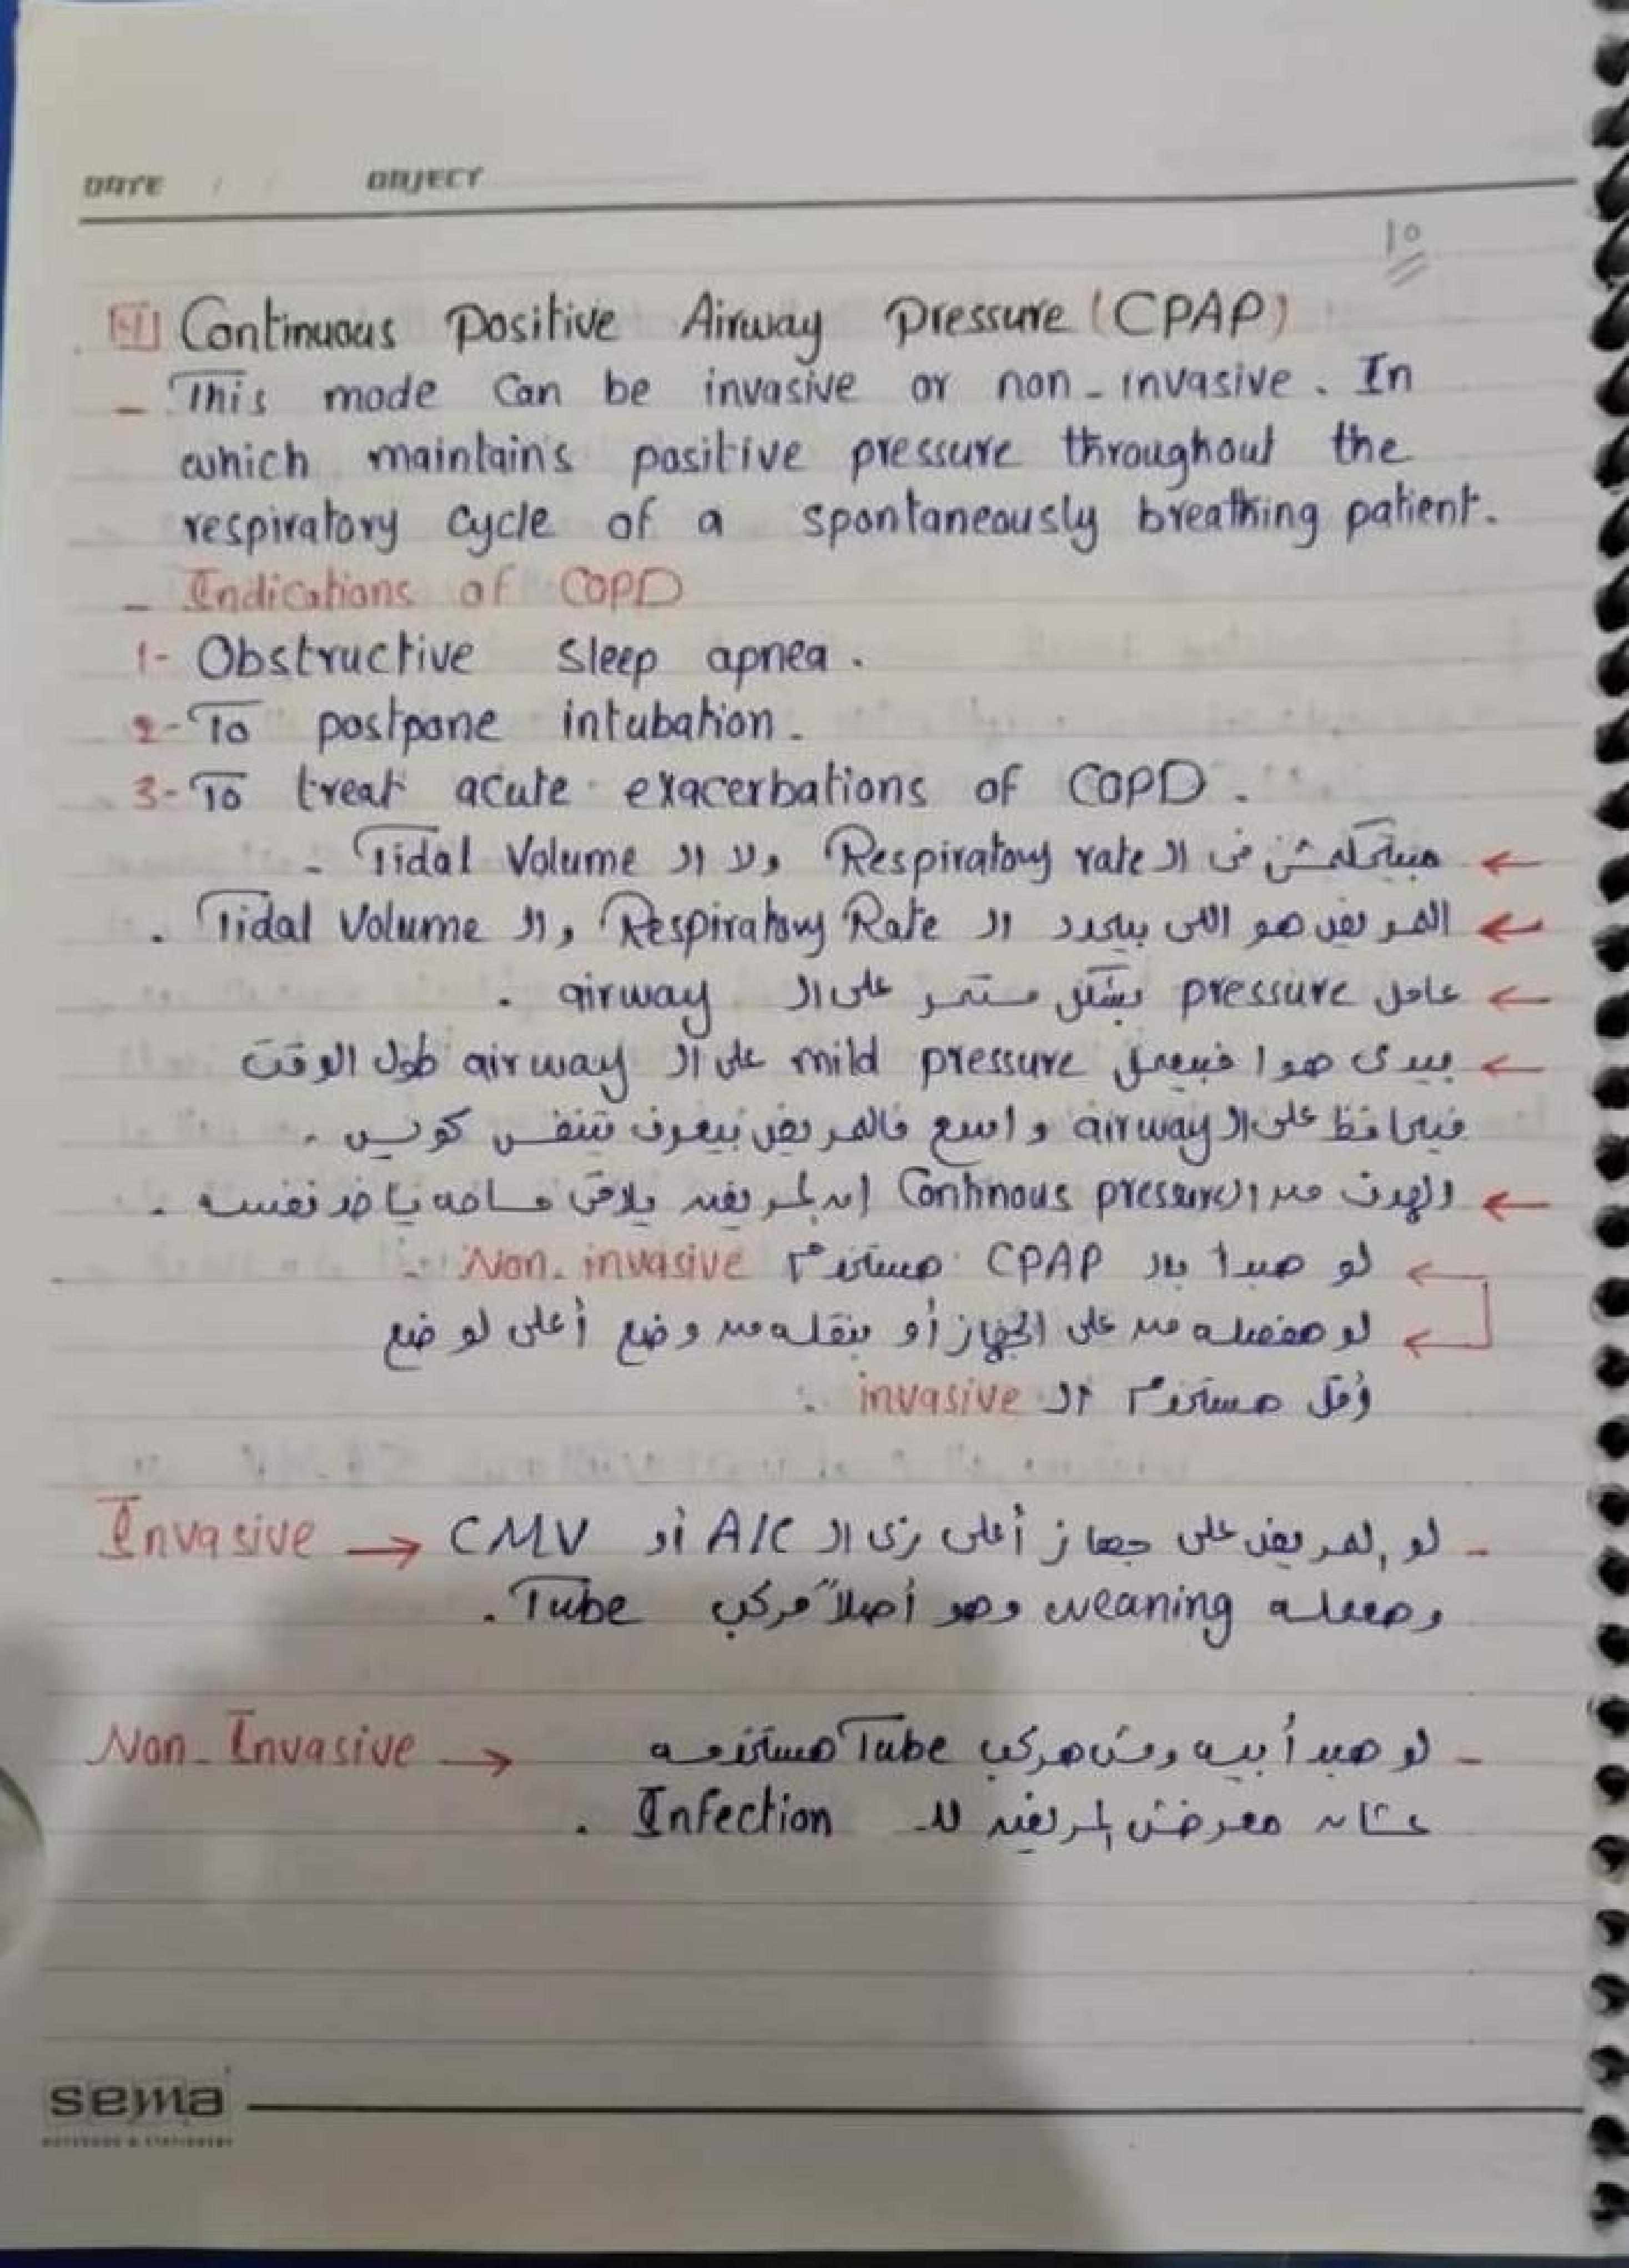 DATE / / OBJECT
10
[4] Continuous Positive Airway Pressure (CPAP)
- This mode can be invasive or non-invasive. In
which maintains positive pressure throughout the
respiratory cycle of a spontaneously breathing patient.
- Indications of COPD
1- Obstructive sleep apnea.
2- To postpone intubation.
3- To treat acute exacerbations of COPD.
← مبيتحكمش فى الـ Respiratory rate ولا الـ Tidal Volume -
← المريض هو اللى بيحدد الـ Respiratory Rate والـ Tidal Volume .
← عامل pressure بشكل مستمر على الـ airway .
← بيدى هوا فبيعمل mild pressure على الـ airway طول الوقت
فبيحافظ على الـ airway واسع فالمريض بيعرف يتنفس كويس .
← الهدف من الـ Continous pressure إن المريض يلاقى مساحه ياخد نفسه .
← لو هبدأ بالـ CPAP هستخدم Non-invasive -
← لو هفصله من على الجهاز أو بنقله من وضع أعلى لوضع
أقل هستخدم الـ invasive :
Invasive → - لو المريض على جهاز أعلى زى الـ A/C أو CMV
وهعمله weaning وهو أصلاً مركب Tube.
Non-Invasive → - لو هبدأ بيه ومش مركب Tube هستخدمه
عشان معرضش المريض للـ Infection .
sema
NOTEBOOK & STATIONERY